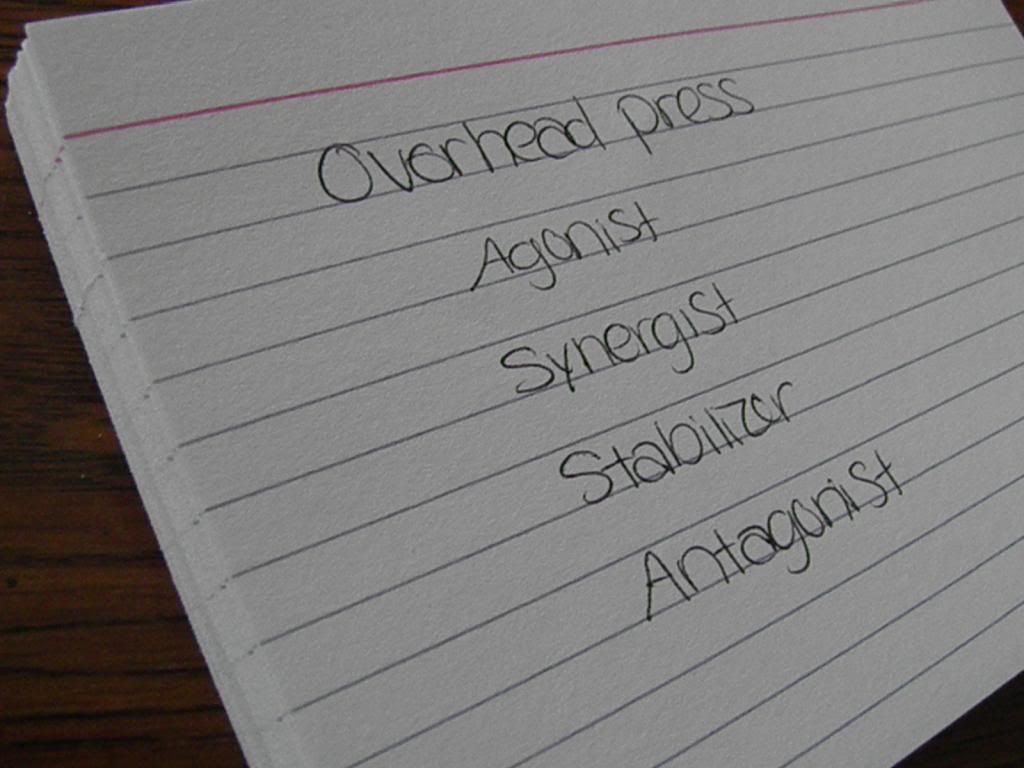 Overhead press
Agonist
Synergist
Stabilizer
Antagonist